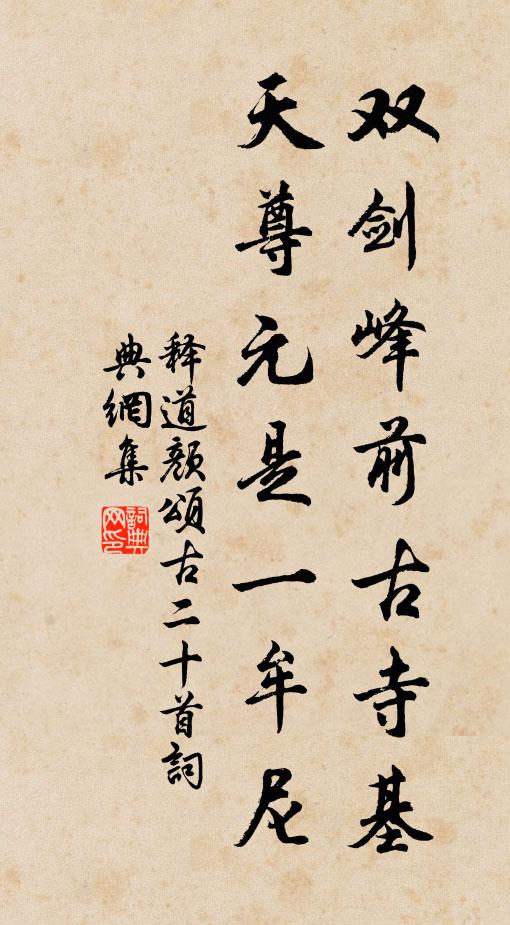 双剑峰前古寺基
天尊元是一牟尼
释道颜颂古二十首詞
典網集
詞典網印